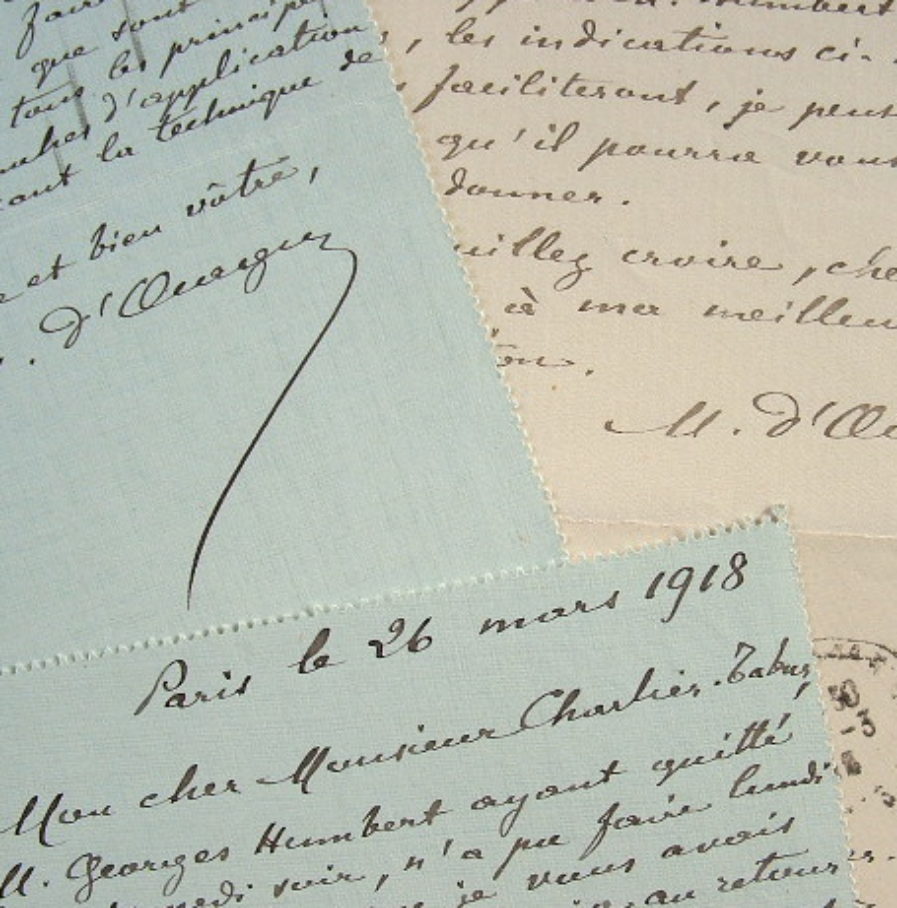 faire
que sont
tous les principes
d'application
la technique de
et bien vôtre,
. d'Ouargny
Humbert
, les indications ci-
faciliteront, je pens
qu'il pourra vous
donner.
uillez croire, che
à ma meilleu
on.
M. d'Ou
Paris le 26 mars 1918
Mon cher Monsieur Charlier-Tabur,
M. Georges Humbert ayant quitté
soir, n'a pu faire lundi
je vous avais
au retour